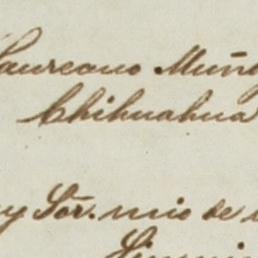 Laureano Muñ
Chihuahua
y Sór. mio de